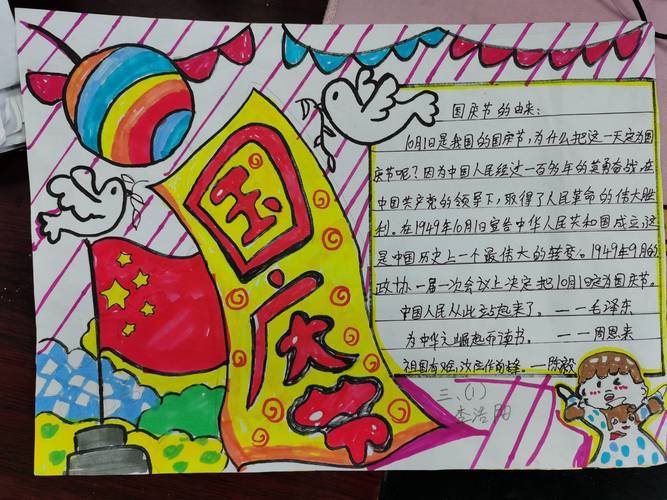 国庆节
国庆节的由来:
10月1日是我国的国庆节,为什么把这一天定为国
庆节呢?因为中国人民经过一百多年的英勇奋战,在
中国共产党的领导下,取得了人民革命的伟大胜
利。在1949年10月1日宣告中华人民共和国成立,这
是中国历史上一个最伟大的转变。1949年9月的
政协一届一次会议上决定把10月1日定为国庆节。
中国人民从此站起来了。——毛泽东
为中华之崛起而读书。——周恩来
祖国有难,汝应作前锋。—陈毅
三、(1)
李浩